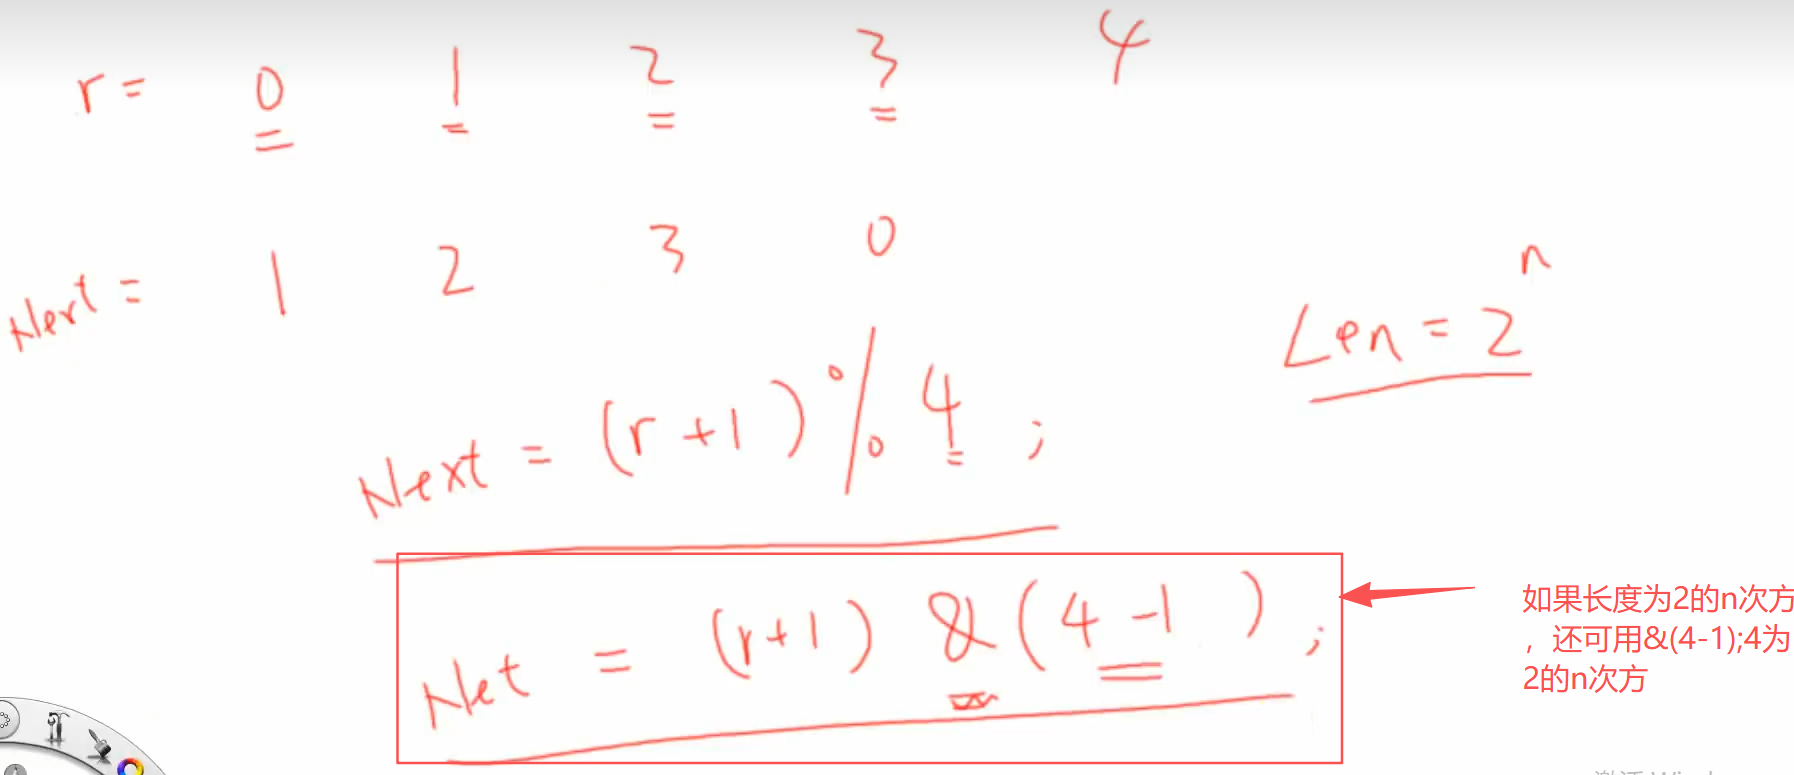 r = 0 1 2 3 4
Next = 1 2 3 0
Len = 2^n
Next = (r+1) % 4 ;
Net = (r+1) & (4-1) ;
如果长度为2的n次方
，还可用&(4-1);4为
2的n次方